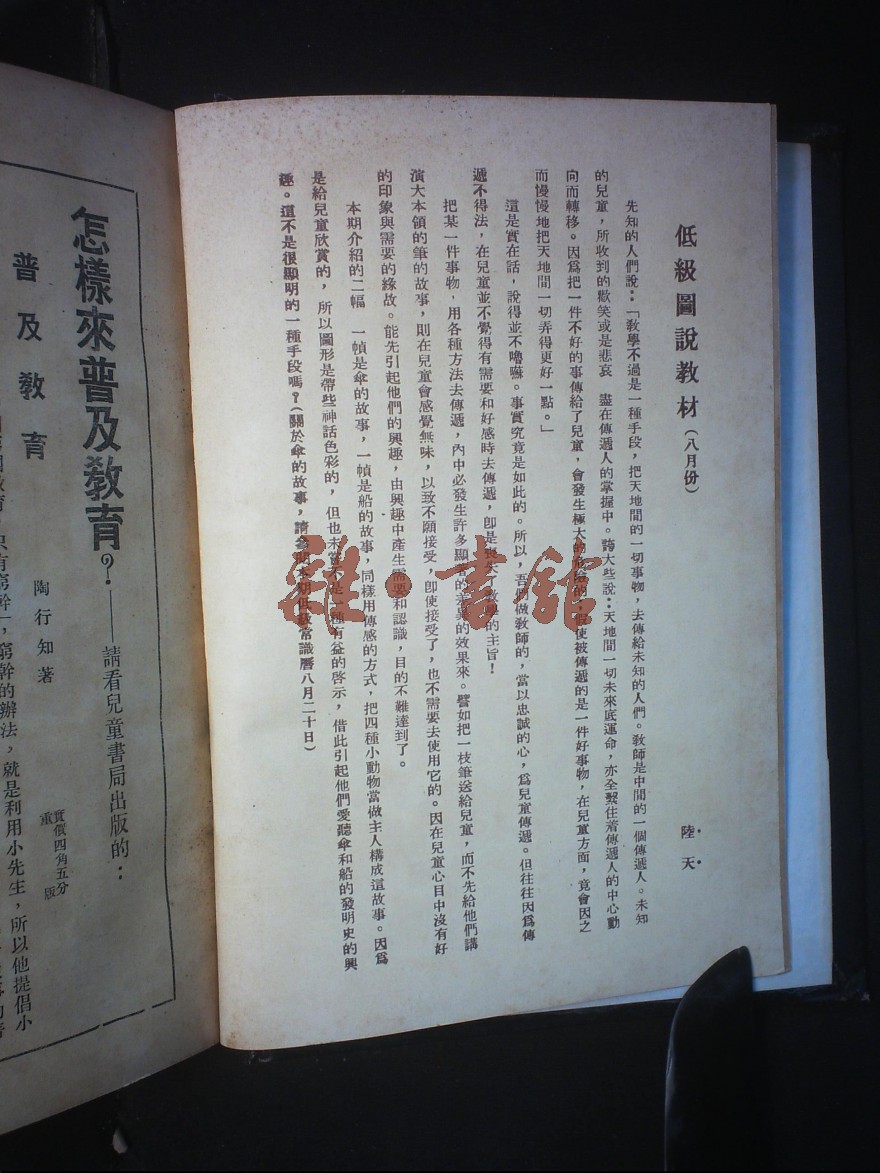 低級圖說教材(八月份)
陸天
先知的人們說:「敎學不過是一種手段,把天地間的一切事物,去傳給未知的人們。敎師是中間的一個傳遞人。未知
的兒童,所收到的歡笑或是悲哀 盡在傳遞人的掌握中。誇大些說:天地間一切未來底運命,亦全繫住着傳遞人的中心動
向而轉移。因爲把一件不好的事傳給了兒童,會發生極大的危險的,假使被傳遞的是一件好事物,在兒童方面,竟會因之
而慢慢地把天地間一切弄得更好一點。」
這是實在話,說得並不嚕囌。事實究竟是如此的。所以,吾們做敎師的,當以忠誠的心,爲兒童傳遞。但往往因爲傳
遞不得法,在兒童並不覺得有需要和好感時去傳遞,卽是喪失了敎學的主旨!
把某一件事物,用各種方法去傳遞,內中必發生許多顯著的差異的效果來。譬如把一枝筆送給兒童,而不先給他們講
演大本領的筆的故事,則在兒童會感覺無味,以致不願接受,卽使接受了,也不需要去使用它的。因在兒童心目中沒有好
的印象與需要的緣故。能先引起他們的興趣,由興趣中產生需要和認識,目的不難達到了。
本期介紹的二幅 一幀是傘的故事,一幀是船的故事,同樣用傳感的方式,把四種小動物當做主人構成這故事。因爲
是給兒童欣賞的,所以圖形是帶些神話色彩的,但也未嘗不是一種有益的啓示,借此引起他們愛聽傘和船的發明史的興
趣。這不是很顯明的一種手段嗎?(關於傘的故事,請參閱本期低級常識曆八月二十日)
怎樣來普及敎育?——請看兒童書局出版的:
普及敎育
陶行知著
實價四角五分
重版
只有窮幹,窮幹的辦法,就是利用小先生,所以他提倡小
雜·書館